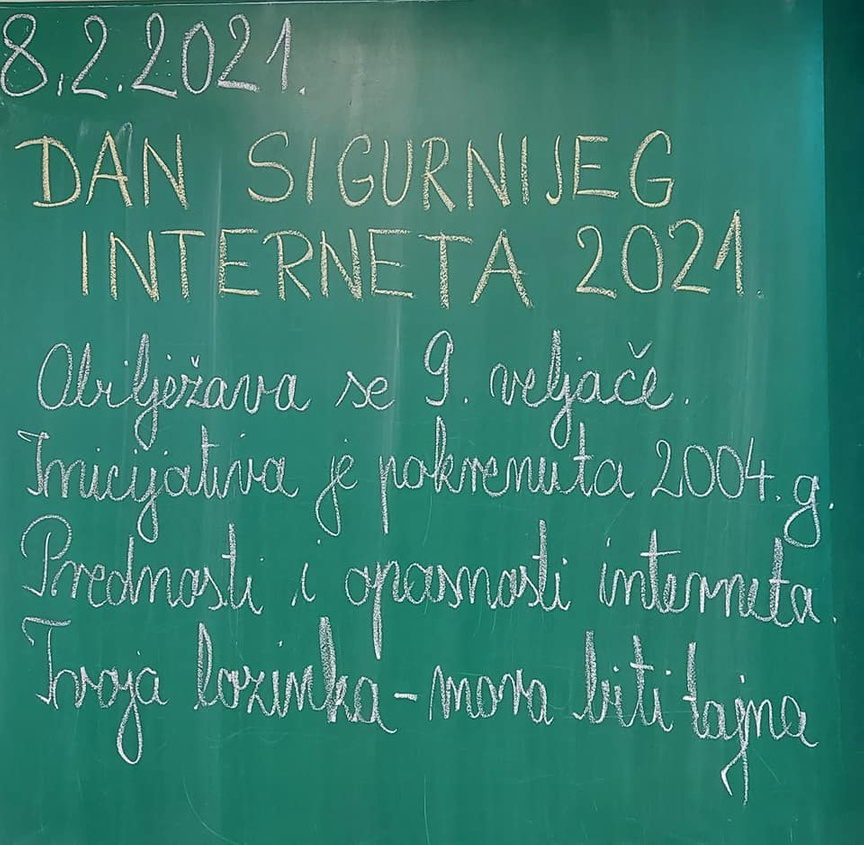 8.2.2021.
DAN SIGURNIJEG
INTERNETA 2021.
Obilježava se 9. veljače.
Inicijativa je pokrenuta 2004. g.
Prednosti i opasnosti interneta.
Tvoja lozinka - mora biti tajna